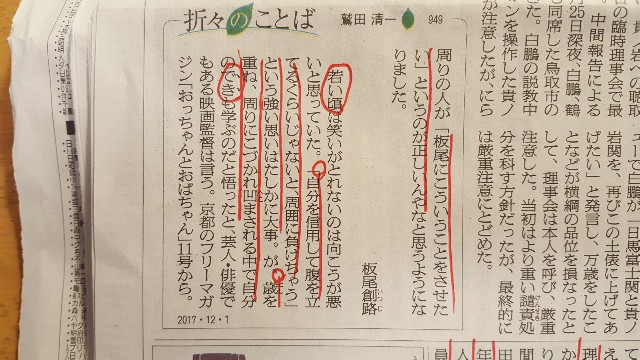 折々のことば
鷲田 清一
949
周りの人が「板尾にこういうことをさせた
い」というのが正しいんやなと思うようにな
りました。
板尾創路
いつじ
若い頃は笑いがとれないのは向こうが悪
いと思っていた。「自分を信用して腹を立
てるぐらいじゃないと、周囲に負けちゃう」
という強い思いはたしかに大事。が、歳を
重ね、周りにこづかれ凹まされる中で自分
のできも学ぶのだと悟ったと、芸人・俳優で
もある映画監督は言う。京都のフリーマガ
ジン「おっちゃんとおばちゃん」11号から。
2017・12・1
貴ノ岩への聴取
の臨時理事会で最
。中間報告による
月25日深夜、白鵬、鶴
も同席した鳥取市の
た。白鵬の説教中
ンを操作した貴ノ
か注意したが、にら
ューで白鵬が「日馬富士関と貴
岩関を、再びこの土俵に上げてあ
げたい」と発言し、万歳をしたこ
となどが横綱の品位を損なったと
して、理事会は本人を呼び、厳重
注意した。当初はより重い譴責処
分を科す方針だったが、最終的に
は厳重注意にとどめた。